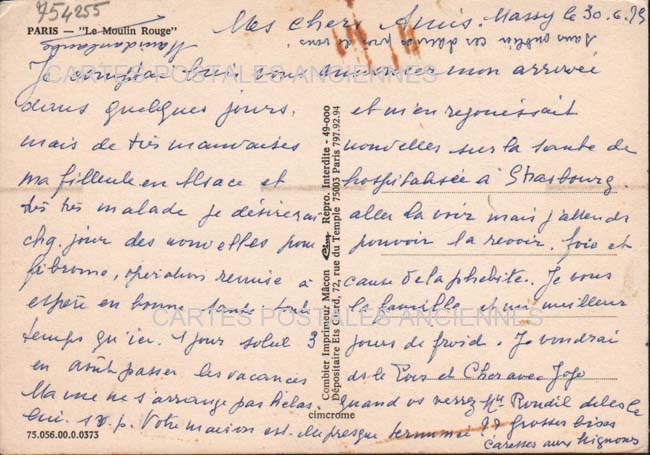 754255
PARIS — "Le Moulin Rouge"
Mes chers Amis. Massy le 30.6.75
Je comptais bien vous annoncer mon arrivée
dans quelques jours. et m'en rejouissait
mais de très mauvaises nouvelles sur la santé de
ma filleule en Alsace et hospitalisée à Strasbourg.
très très malade je désirerai aller la voir mais j'attends
chq. jour des nouvelles pour pouvoir la revoir. foie et
fibrome, opération remise à cause de la phébite. Je vous
espère en bonne santé toute la famille et un meilleur
temps qu'ici. 1 jour soleil 3 jours de froid. Je voudrai
en août passer les vacances ds le Loir et Cher avec Jojo
Ma vue ne s'arrange pas hélas. Quand vs verrez Mr Roudil dites le
lui. s.v.p. Votre maison est-elle presque terminée ? grosses bises
Caresses aux mignons
Combier Imprimeur Mâcon Cim Repro. Interdite - 49-000
Dépositaire Ets Guiard, 72, rue du Temple 75003 Paris 797.92.94
cimcrome
75.056.00.0.0373
CARTES POSTALES ANCIENNES
CARTES POSTALES ANCIENNES